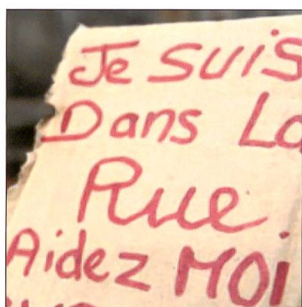 Je suis
Dans La
Rue.
Aidez MOI